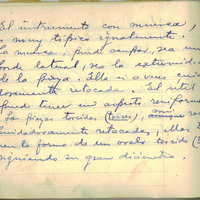 El instrumento con muesca,
es muy típico igualmente.
La muesca, puede ocupar, sea un
borde lateral, sea la extremidad
de la pieza. Ella es a veces cuida
dosamente retocada. El útil
puede tener un aspecto reniforme
Las piezas torcidas (torses),
cuidadosamente retocadas, ellas
la forma de un ovalo torcido
siguiendo su gran diámetro.